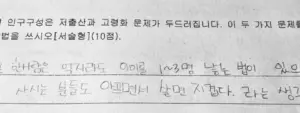 인구구성은 저출산과 고령화 문제가 두드러집니다. 이 두 가지 문제를
법을 쓰시오[서술형](10점).
한사람은 딱시라도 아이를 1~3명 낳는 법이 있으
사시는 분들도 아프면서 살면 지겹다. 라는 생각